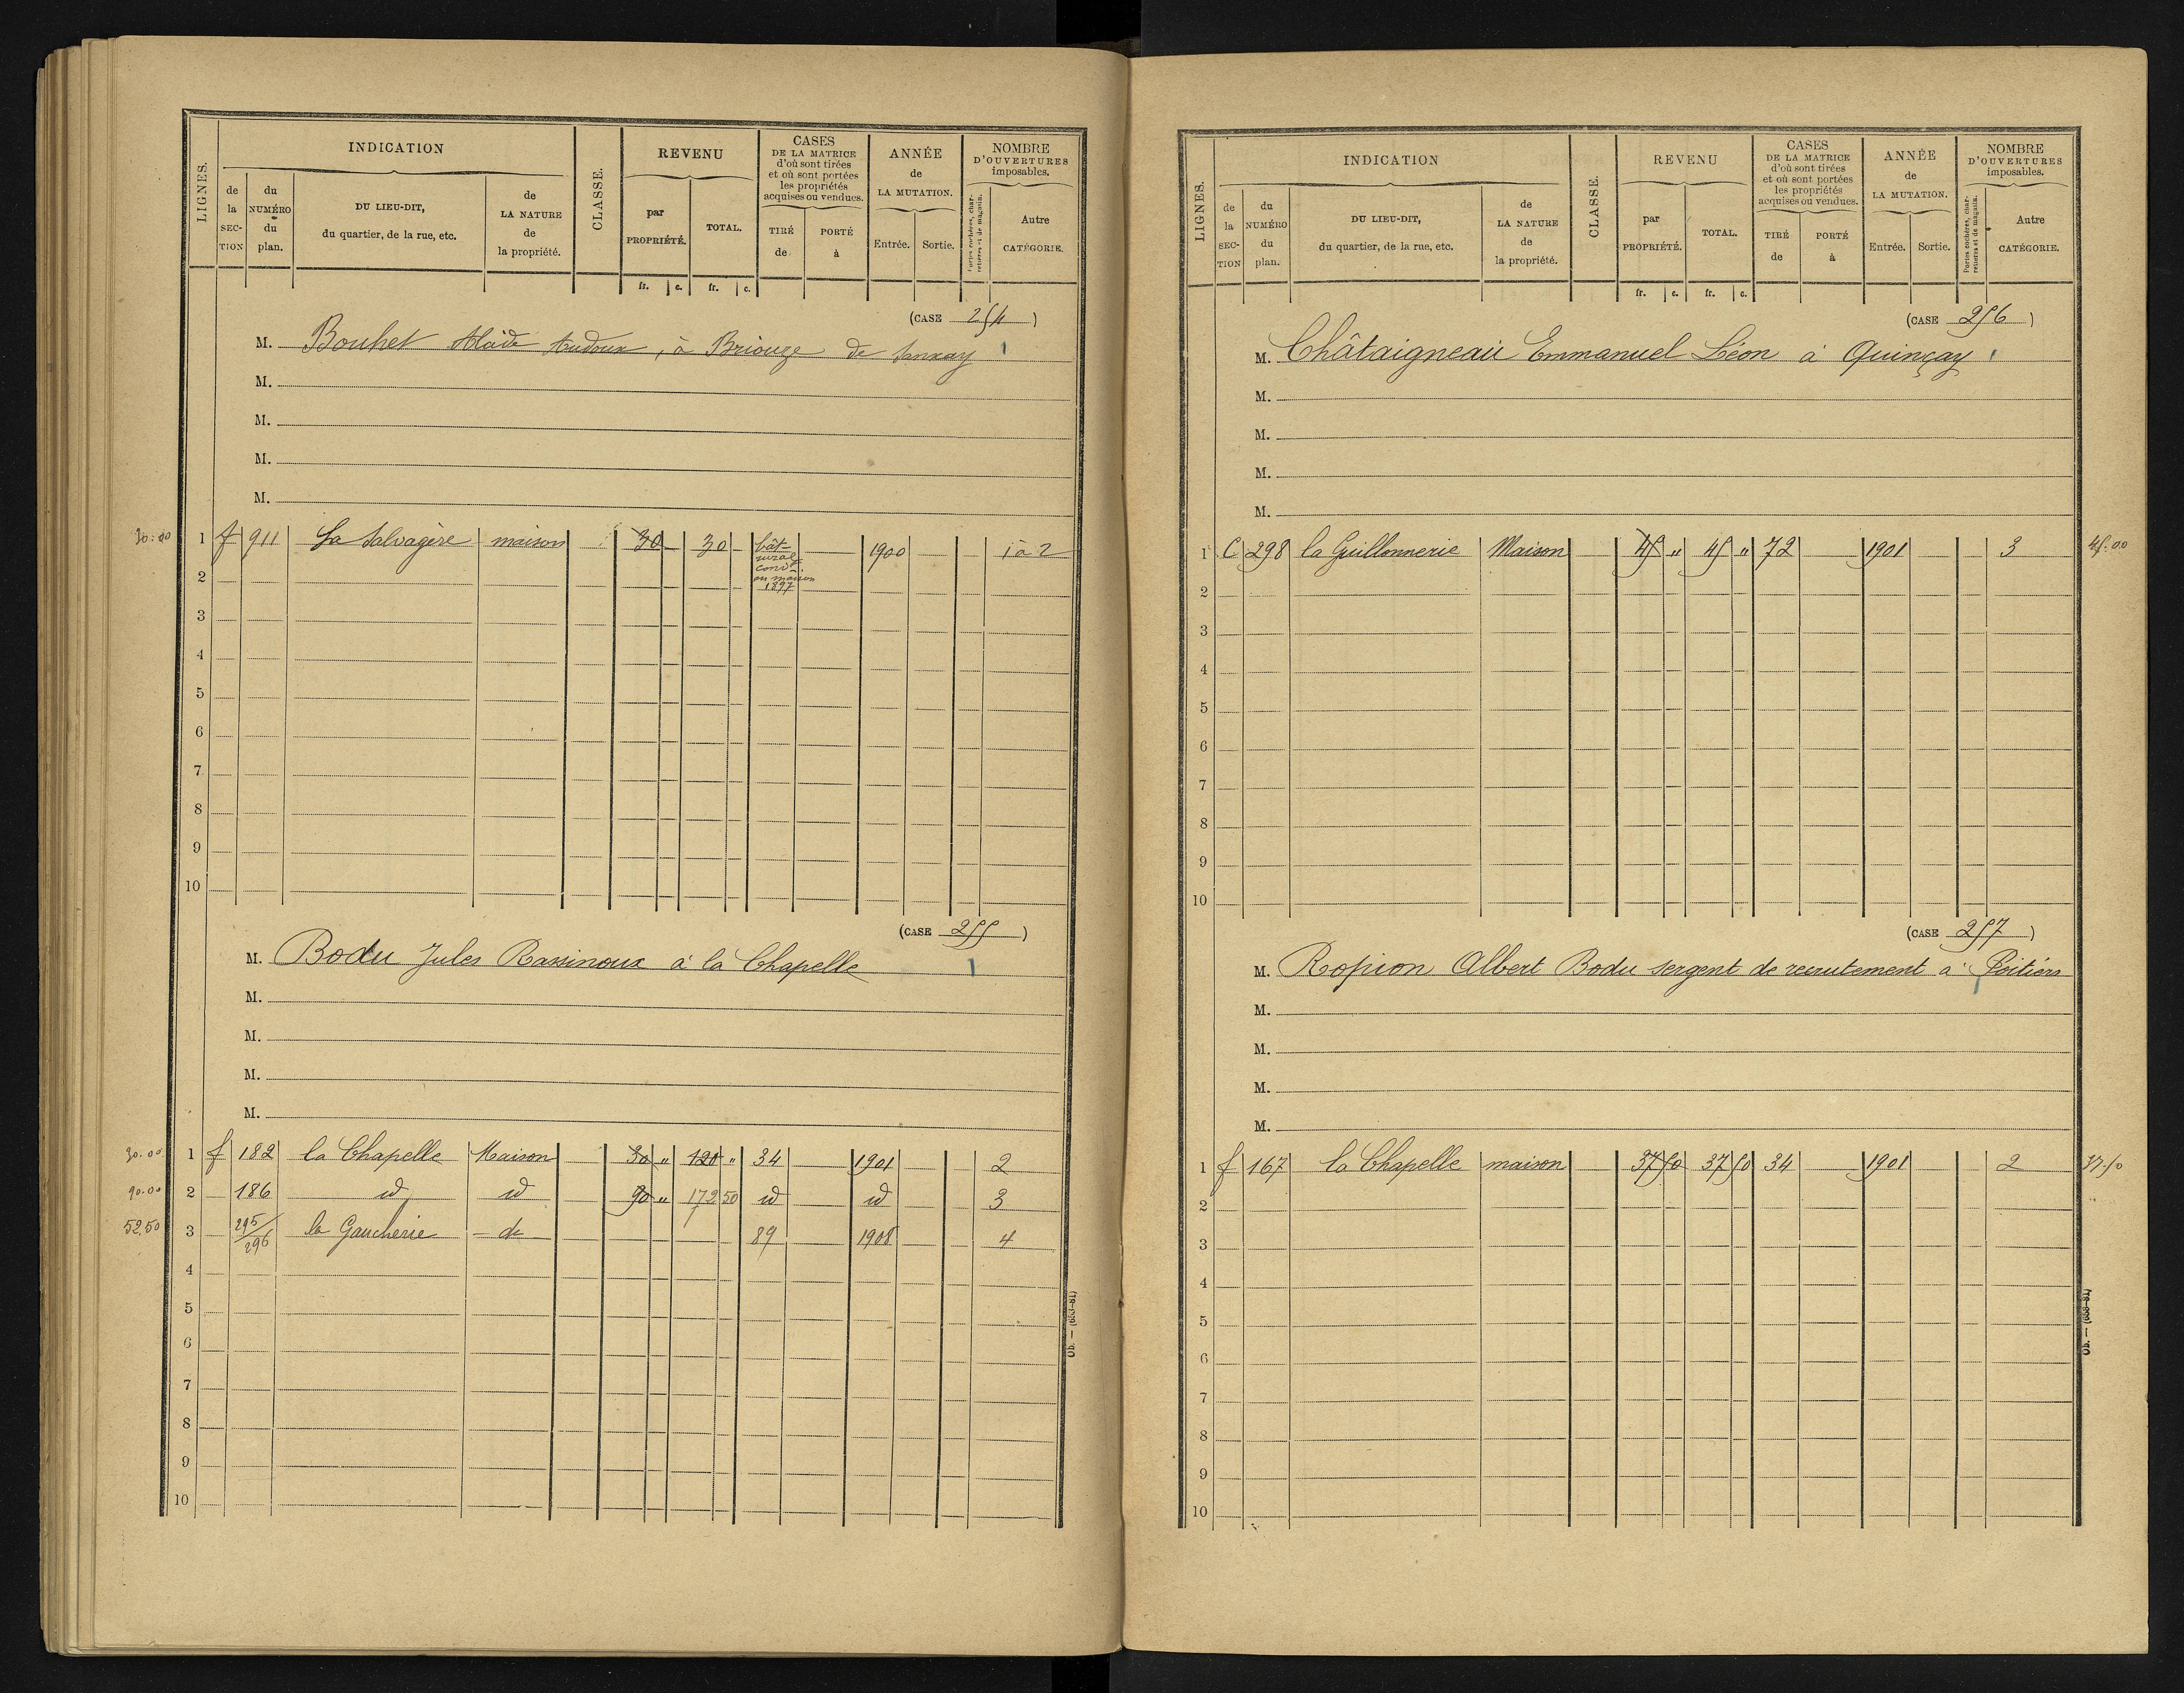 LIGNES.
INDICATION
de la SECTION
du NUMÉRO du plan.
DU LIEU-DIT, du quartier, de la rue, etc.
de LA NATURE de la propriété.
CLASSE.
REVENU
par PROPRIÉTÉ.
TOTAL.
fr. c. fr. c.
CASES DE LA MATRICE d'où sont tirées et où sont portées les propriétés acquises ou vendues.
TIRÉ de
PORTÉ à
ANNÉE de LA MUTATION.
Entrée. Sortie.
NOMBRE D'OUVERTURES imposables.
Portes cochères, charretières et de magasin.
Autre CATÉGORIE.
(CASE 254)
M. Bouhet Audoux, à Brioux de Sanxay
M.
M.
M.
M.
30.00 1 f 911 La Salvagère maison 30 30 bât. rural conv. en maison 1897 1900 1 à 2
2
3
4
5
6
7
8
9
10
(CASE 255)
M. Bodu Jules Rassinoux à la Chapelle
M.
M.
M.
M.
30.00 1 f 182 la Chapelle Maison 30 " 120 " 34 1901 2
90.00 2 186 id id 90 " 172 50 id id 3
52.50 3 295/296 la Gaucherie d° 89 1908 4
4
5
6
7
8
9
10
Ob. — (653-81)
LIGNES.
INDICATION
de la SECTION
du NUMÉRO du plan.
DU LIEU-DIT, du quartier, de la rue, etc.
de LA NATURE de la propriété.
CLASSE.
REVENU
par PROPRIÉTÉ.
TOTAL.
fr. c. fr. c.
CASES DE LA MATRICE d'où sont tirées et où sont portées les propriétés acquises ou vendues.
TIRÉ de
PORTÉ à
ANNÉE de LA MUTATION.
Entrée. Sortie.
NOMBRE D'OUVERTURES imposables.
Portes cochères, charretières et de magasin.
Autre CATÉGORIE.
(CASE 256)
M. Châtaigneau Emmanuel Léon à Quinçay
M.
M.
M.
M.
1 C 298 la Guillonnerie Maison 45 " 45 " 72 1901 3 45.00
2
3
4
5
6
7
8
9
10
(CASE 257)
M. Ropion Albert Bodu sergent de recrutement à Poitiers
M.
M.
M.
M.
1 f 167 la Chapelle maison 37 50 37 50 34 1901 2 37.50
2
3
4
5
6
7
8
9
10